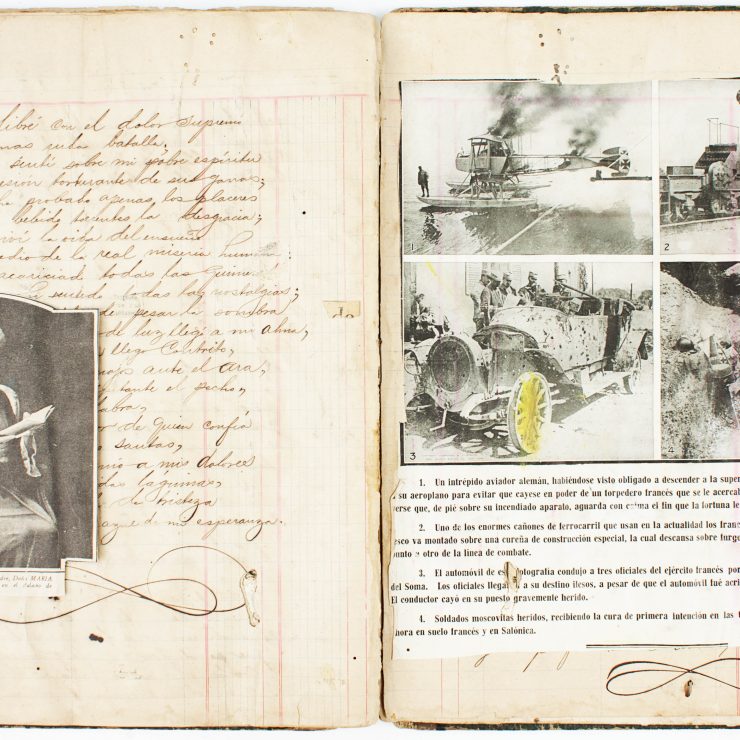 libré con el dolor supremo
mas ruda batalla;
sentí sobre mi pobre espíritu
de sus ganas;
probado apenas, los placeres
bebido torrentes la desgracia;
la vida del ensueño
medio de la real miseria humana;
acariciado todas las
todas las nostalgias;
de pesar la sombra
de luz llegó a mi alma,
llego contrito,
ante el ara,
ante el pecho,
labra,
de quien confía
santas,
a mis dolores
lágrimas,
de la tristeza
de mi esperanza.
de
MARIA
en el
1
2
3
1. Un intrépido aviador alemán, habiéndose visto obligado a descender a la super
su aeroplano para evitar que cayese en poder de un torpedero francés que se le acercab
verse que, de pié sobre su incendiado aparato, aguarda con calma el fin que la fortuna le
2. Uno de los enormes cañones de ferrocarril que usan en la actualidad los franc
esco va montado sobre una cureña de construcción especial, la cual descansa sobre furgo
punto a otro de la línea de combate.
3. El automóvil de es fotografía condujo a tres oficiales del ejército francés por
del Soma. Los oficiales llega a su destino ilesos, a pesar de que el automóvil fué acri
El conductor cayó en su puesto gravemente herido.
4. Soldados moscovitas heridos, recibiendo la cura de primera intención en las t
ahora en suelo francés y en Salónica.